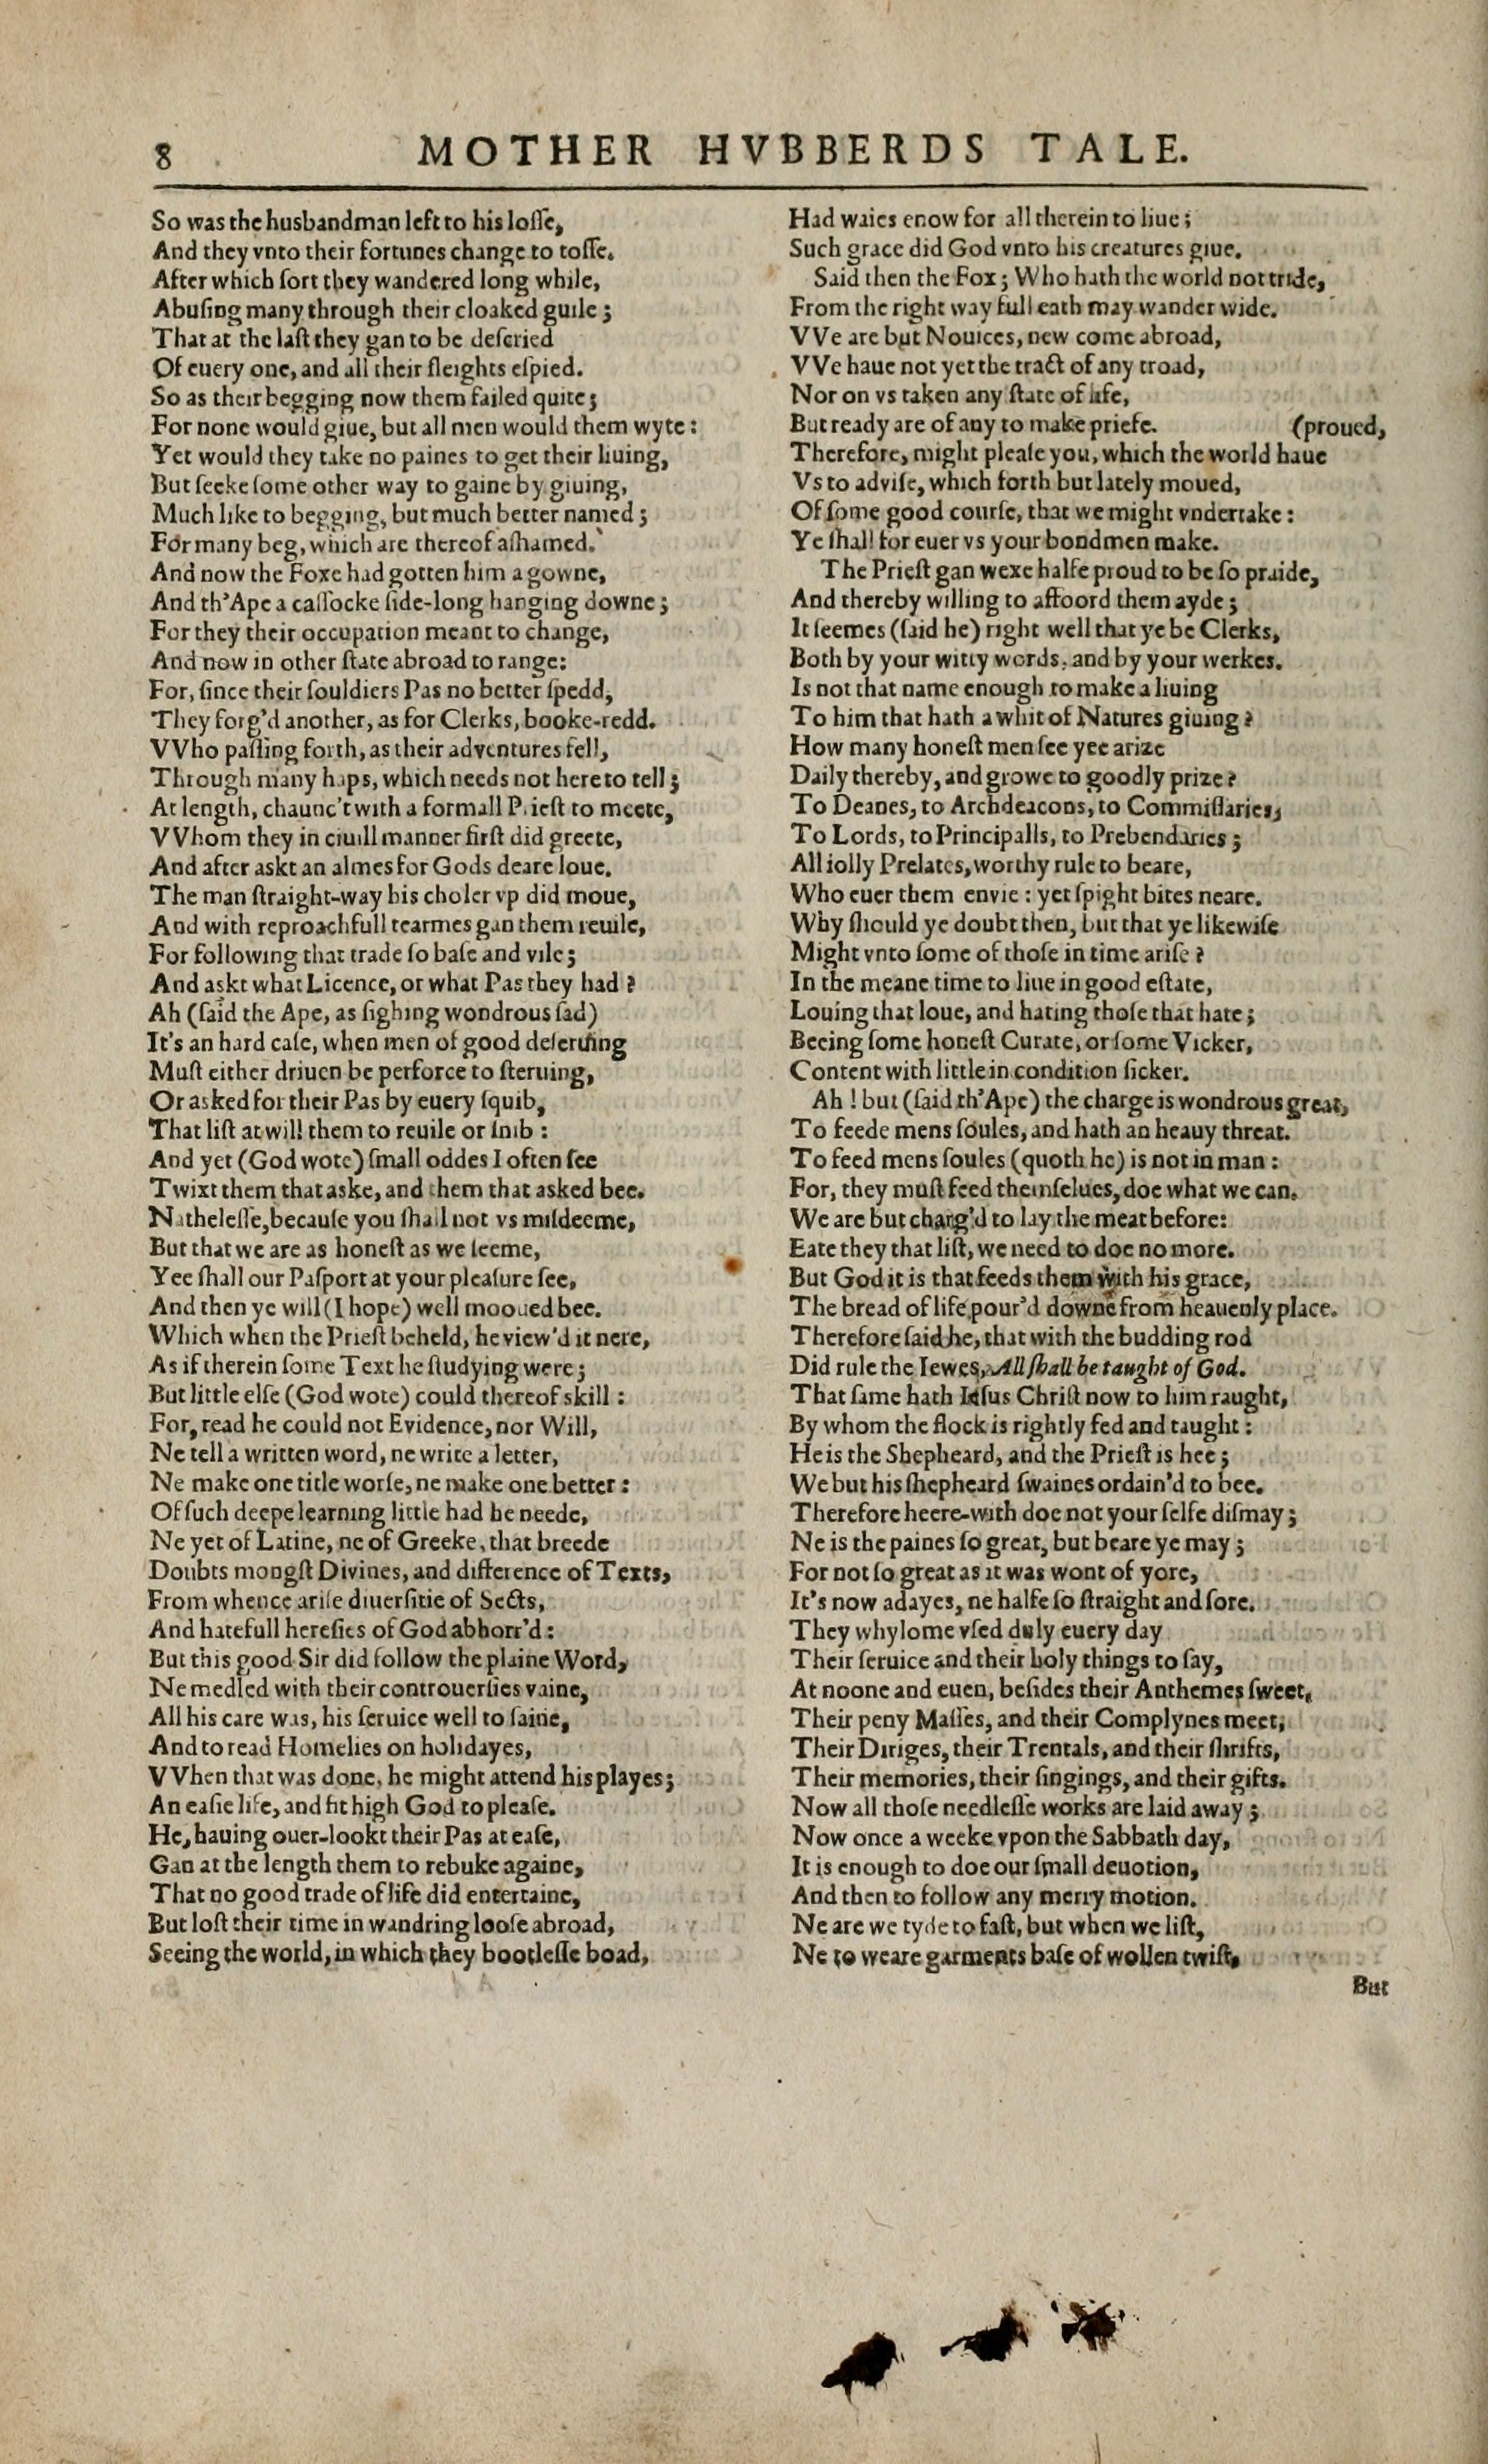 8 MOTHER HVBBERDS TALE.
So was the husbandman left to his loſſe,
And they vnto their fortunes change to toſſe.
After which ſort they wandered long while,
Abuſing many through their cloaked guile;
That at the laſt they gan to be deſcried
Of euery one, and all their ſleights eſpied.
So as their begging now them failed quite;
For none would giue, but all men would them wyte:
Yet would they take no paines to get their liuing,
But ſeeke ſome other way to gaine by giuing,
Much like to begging, but much better named;
For many beg, which are thereof aſhamed.
And now the Foxe had gotten him a gowne,
And th'Ape a caſſocke ſide-long hanging downe;
For they their occupation meant to change,
And now in other ſtate abroad to range:
For, ſince their ſouldiers Pas no better ſpedd,
They forg'd another, as for Clerks, booke-redd.
VVho paſſing forth, as their adventures fell,
Through many haps, which needs not here to tell;
At length, chaunc't with a formall Prieſt to meete,
VVhom they in ciuill manner firſt did greete,
And after askt an almes for Gods deare loue.
The man ſtraight-way his choler vp did moue,
And with reproachfull tearmes gan them reuile,
For following that trade ſo baſe and vile;
And askt what Licence, or what Pas they had?
Ah (ſaid the Ape, as ſighing wondrous ſad)
It's an hard caſe, when men of good deſeruing
Muſt either driuen be perforce to ſteruing,
Or asked for their Pas by euery ſquib,
That liſt at will them to reuile or ſnib:
And yet (God wote) ſmall oddes I often ſee
Twixt them that aske, and them that asked bee.
Natheleſſe, becauſe you ſhall not vs miſdeeme,
But that we are as honeſt as we ſeeme,
Yee ſhall our Paſport at your pleaſure ſee,
And then ye will (I hope) well mooued bee.
Which when the Prieſt beheld, he view'd it nere,
As if therein ſome Text he ſtudying were;
But little elſe (God wote) could thereof skill:
For, read he could not Evidence, nor Will,
Ne tell a written word, ne write a letter,
Ne make one title worſe, ne make one better:
Of ſuch deepe learning little had he neede,
Ne yet of Latine, ne of Greeke, that breede
Doubts mongſt Divines, and difference of Texts,
From whence ariſe diuerſitie of Sects,
And hatefull hereſies of God abhorr'd:
But this good Sir did follow the plaine Word,
Ne medled with their controuerſies vaine,
All his care was, his ſeruice well to ſaine,
And to read Homelies on holidayes,
VVhen that was done, he might attend his playes;
An eaſie life, and fit high God to pleaſe.
He, hauing ouer-lookt their Pas at eaſe,
Gan at the length them to rebuke againe,
That no good trade of life did entertaine,
But loſt their time in wandring looſe abroad,
Seeing the world, in which they bootleſſe boad,
Had waies enow for all therein to liue;
Such grace did God vnto his creatures giue.
Said then the Fox; Who hath the world not tride,
From the right way full eath may wander wide.
VVe are but Nouices, new come abroad,
VVe haue not yet the tract of any troad,
Nor on vs taken any ſtate of life,
But ready are of any to make priefe. (proued,
Therefore, might pleaſe you, which the world haue
Vs to adviſe, which forth but lately moued,
Of ſome good courſe, that we might vndertake:
Ye ſhall for euer vs your bondmen make.
The Prieſt gan wexe halfe proud to be ſo praide,
And thereby willing to affoord them ayde;
It ſeemes (ſaid he) right well that ye be Clerks,
Both by your witty words, and by your werkes.
Is not that name enough to make a liuing
To him that hath a whit of Natures giuing?
How many honeſt men ſee yee arize
Daily thereby, and growe to goodly prize?
To Deanes, to Archdeacons, to Commiſſaries,
To Lords, to Principalls, to Prebendaries;
All iolly Prelates, worthy rule to beare,
Who euer them envie: yet ſpight bites neare.
Why ſhould ye doubt then, but that ye likewiſe
Might vnto ſome of thoſe in time ariſe?
In the meane time to liue in good eſtate,
Louing that loue, and hating thoſe that hate;
Beeing ſome honeſt Curate, or ſome Vicker,
Content with little in condition ſicker.
Ah! but (ſaid th'Ape) the charge is wondrous great,
To feede mens ſoules, and hath an heauy threat.
To feed mens ſoules (quoth he) is not in man:
For, they muſt feed themſelues, doe what we can.
We are but charg'd to lay the meat before:
Eate they that liſt, we need to doe no more.
But God it is that feeds them with his grace,
The bread of life pour'd downe from heauenly place.
Therefore ſaid he, that with the budding rod
Did rule the Iewes, All ſhall be taught of God.
That ſame hath Ieſus Chriſt now to him raught,
By whom the flock is rightly fed and taught:
He is the Shepheard, and the Prieſt is hee;
We but his ſhepheard ſwaines ordain'd to bee.
Therefore heere-with doe not your ſelfe diſmay;
Ne is the paines ſo great, but beare ye may;
For not ſo great as it was wont of yore,
It's now adayes, ne halfe ſo ſtraight and ſore.
They whylome vſed duly euery day
Their ſeruice and their holy things to ſay,
At noone and euen, beſides their Anthemes ſweet,
Their peny Maſſes, and their Complynes meet,
Their Diriges, their Trentals, and their ſhrifts,
Their memories, their ſingings, and their gifts.
Now all thoſe needleſſe works are laid away;
Now once a weeke vpon the Sabbath day,
It is enough to doe our ſmall deuotion,
And then to follow any merry motion.
Ne are we tyde to faſt, but when we liſt,
Ne to weare garments baſe of wollen twiſt,
But